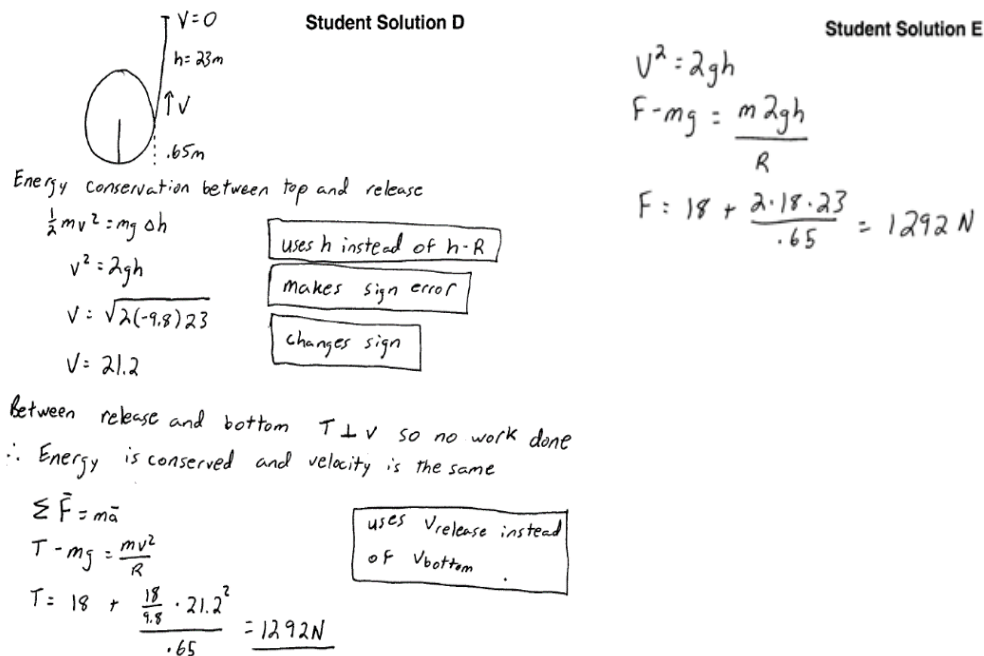 Student Solution D
V=0
h=23m
↑V
.65m
Energy conservation between top and release
½mv²=mg Δh
v²=2gh
V=√2(-9.8)23
V=21.2
uses h instead of h-R
makes sign error
changes sign
Between release and bottom T⊥v so no work done
∴ Energy is conserved and velocity is the same
ΣF̄=mā
T-mg=mv²/R
T=18 + 18/9.8 · 21.2² / .65 = 1292N
uses Vrelease instead
of Vbottom .
Student Solution E
V²=2gh
F-mg = m2gh/R
F= 18 + 2·18·23/.65 = 1292 N